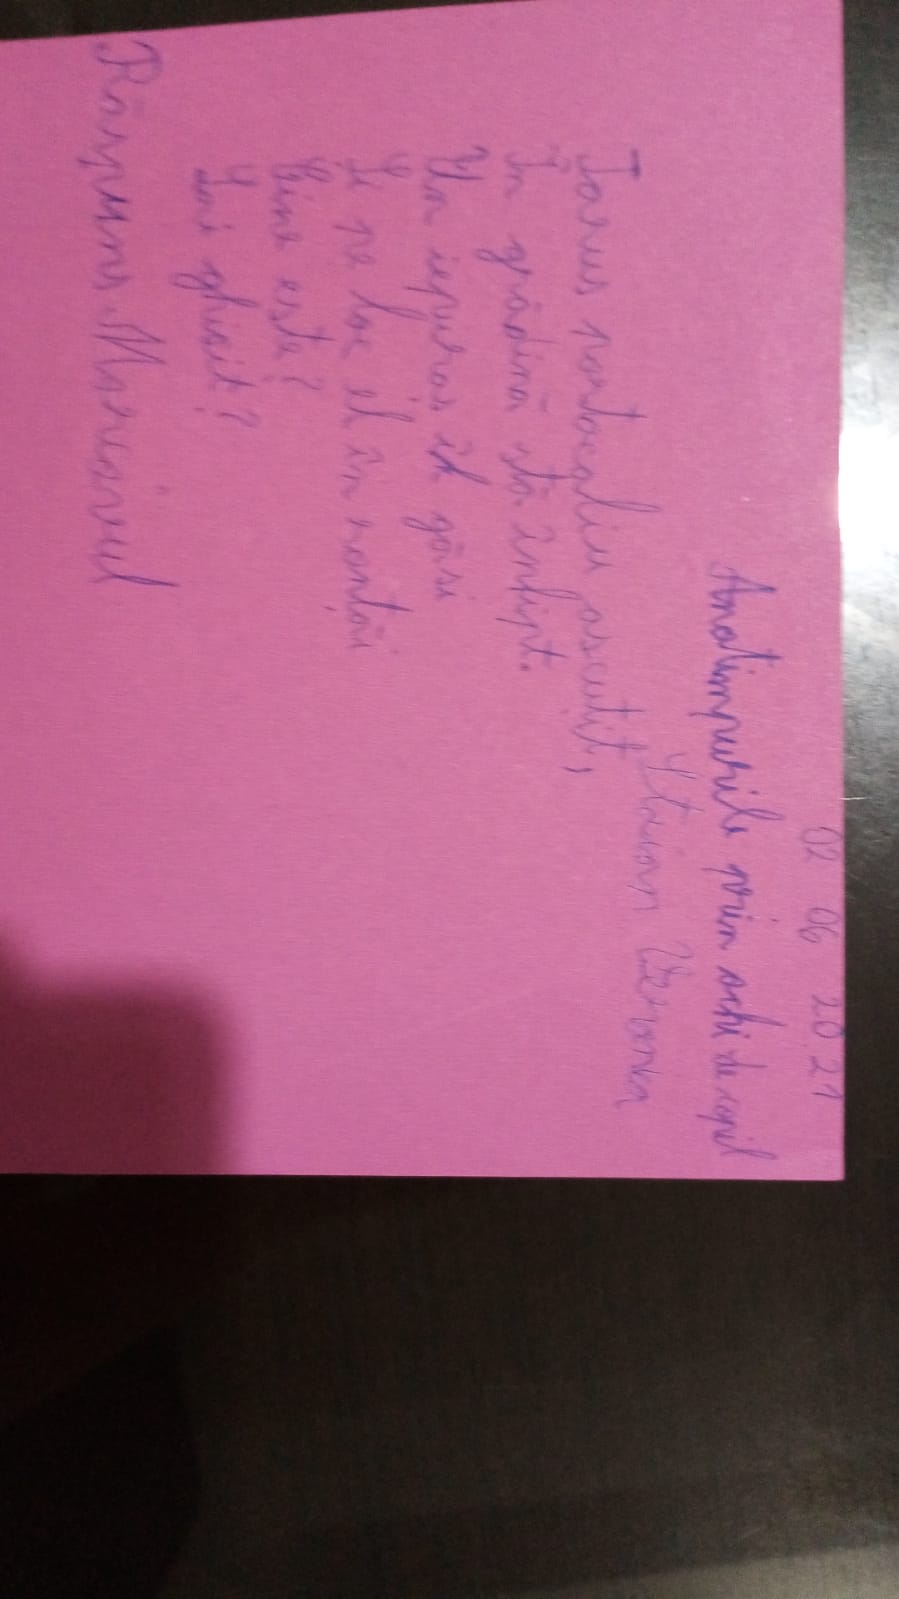 02 06 2021
Anotimpurile prin ochi de copil
Stavan Veronica
Țarus portocaliu ascuțit,
În grădină stă înfipt.
Un iepuras îl găsi
Și pe loc el în ronțăi
Cine este?
L-ai ghicit?
Răspuns: Morcovul